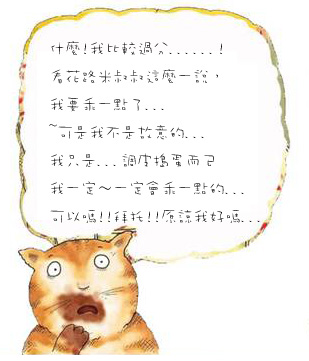 什麼!我比較過分......!
看花路米叔叔這麼一說，
我要乖一點了...
~可是我不是故意的...
我只是...調皮搗蛋而已
我一定～一定會乖一點的...
可以嗎!!拜托!!原諒我好嗎...